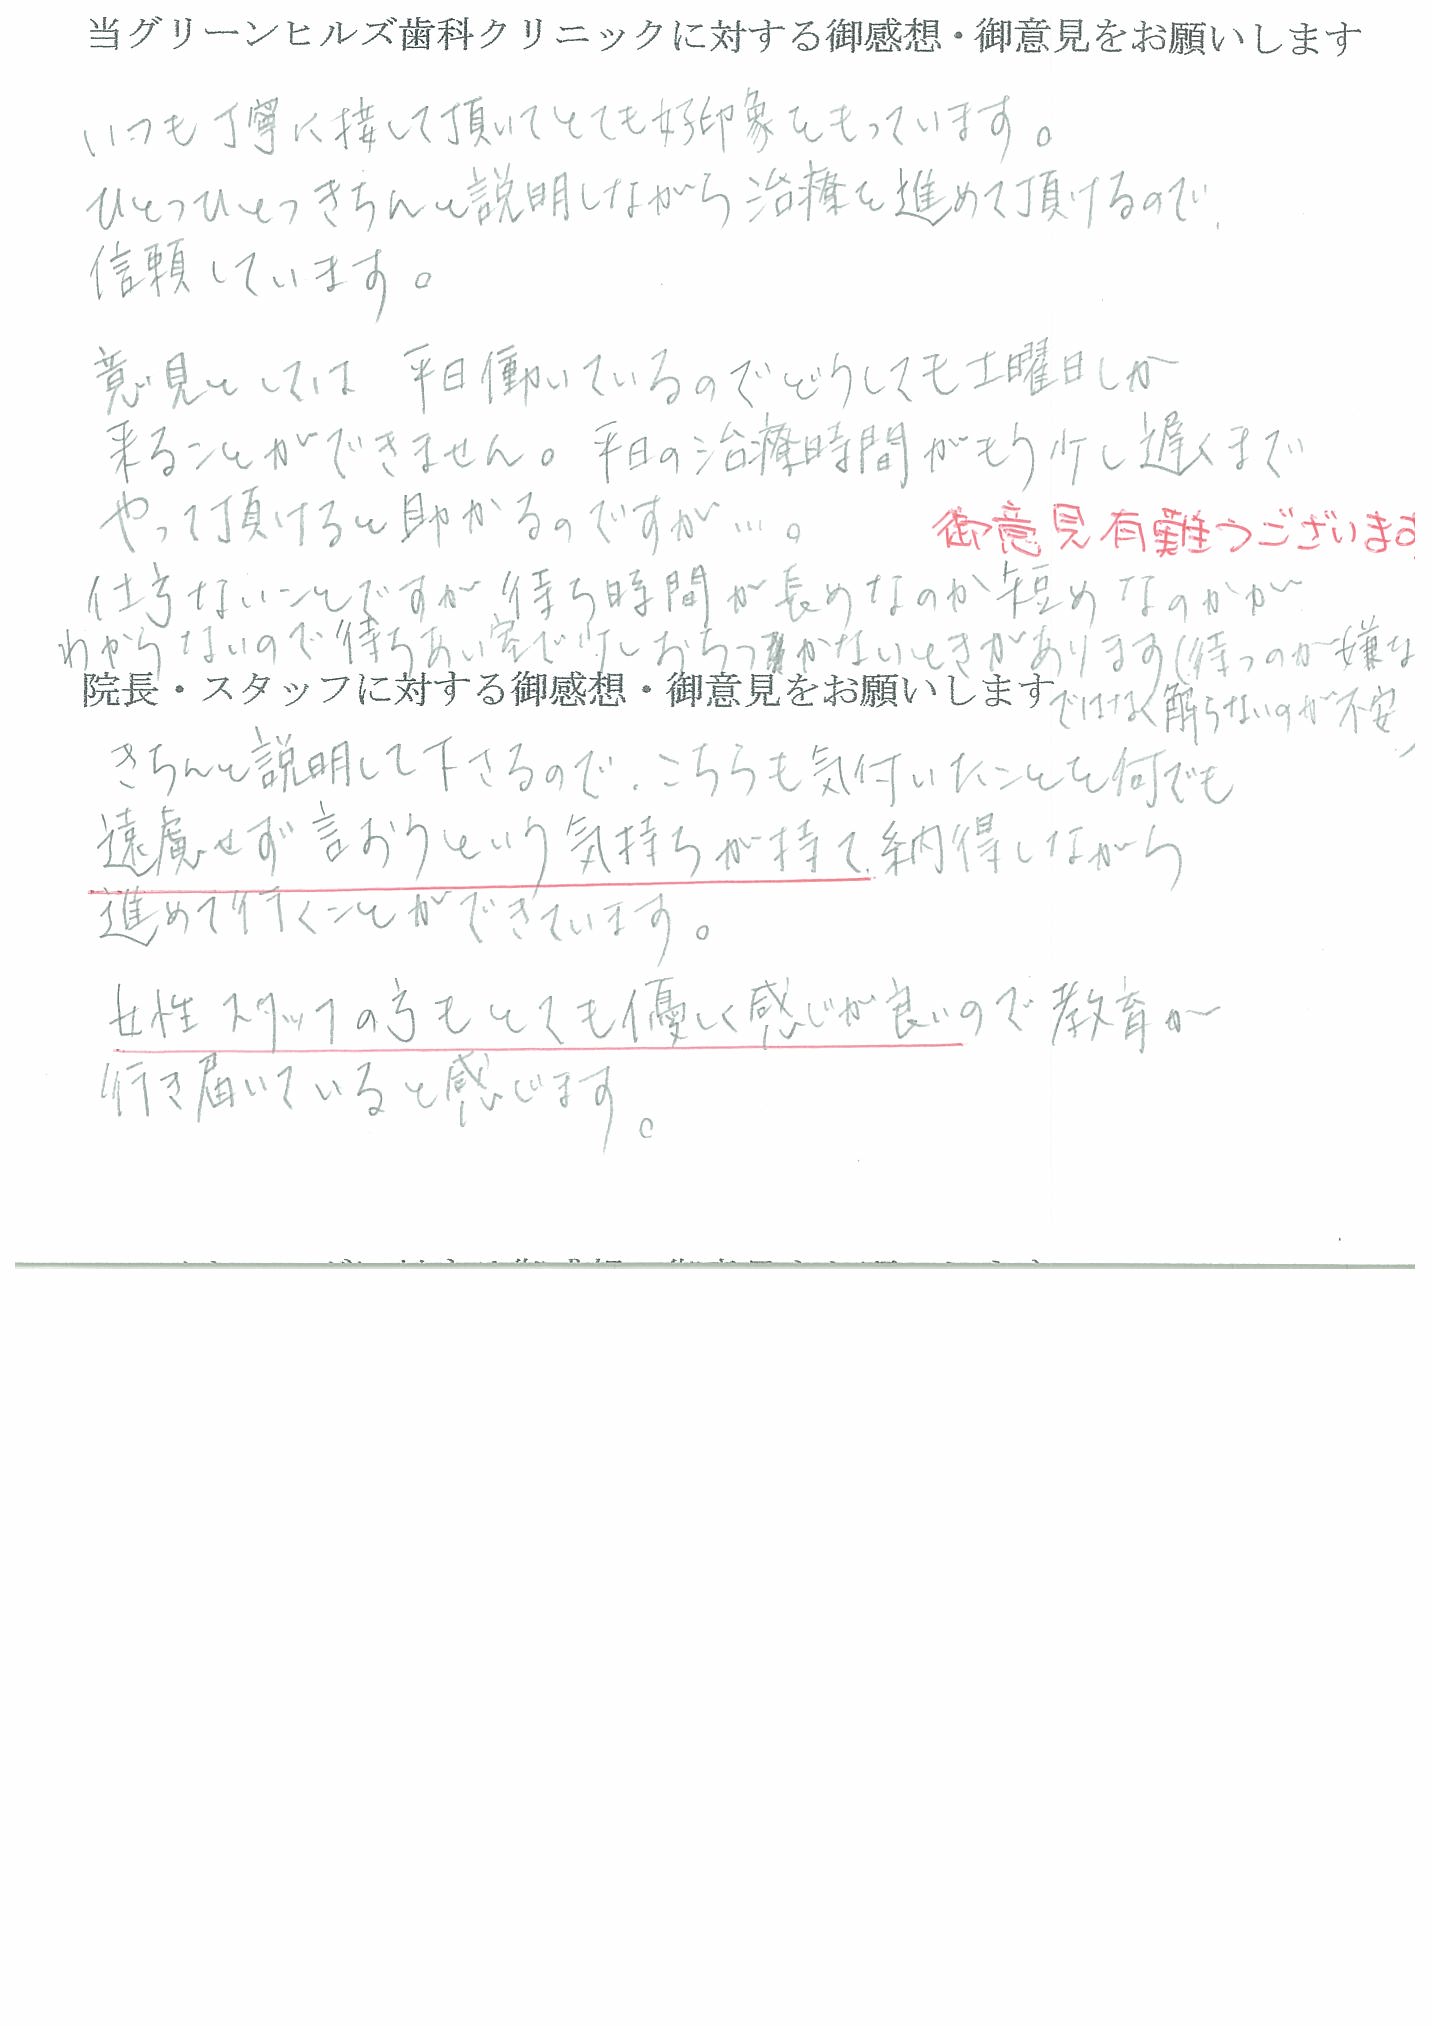 当グリーンヒルズ歯科クリニックに対する御感想・御意見をお願いします
いつも丁寧に接して頂いてとても好印象をもっています。
ひとつひとつきちんと説明しながら治療を進めて頂けるので、
信頼しています。
意見としては 平日働いているのでどうしても土曜日しか
来ることができません。平日の治療時間がもう少し遅くまで
やって頂けると助かるのですが…。
御意見有難うございます
仕方ないことですが待ち時間が長めなのか短めなのかが
わからないので待ちあい室で少しおちつかないときがあります(待つのが嫌な
ではなく解らないのが不安)
院長・スタッフに対する御感想・御意見をお願いします
きちんと説明して下さるので、こちらも気付いたことを何でも
遠慮せず言おうという気持ちが持て、納得しながら
進めて行くことができています。
女性スタッフの方もとても優しく感じが良いので教育が
行き届いていると感じます。